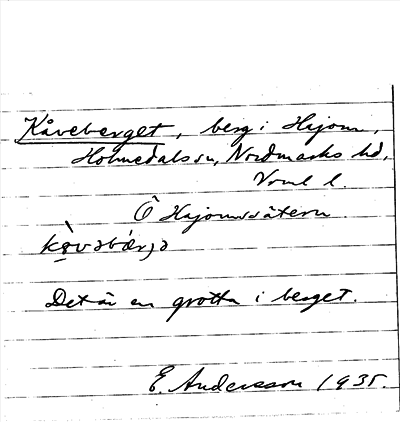 Kåveberget, berg i Hajom,
Holmedals sn, Nordmarks hd,
Vrml l.
Ö Hajomssätern
kòvəbær̀jə
Det är en grotta i berget.
E. Andersson 1935.